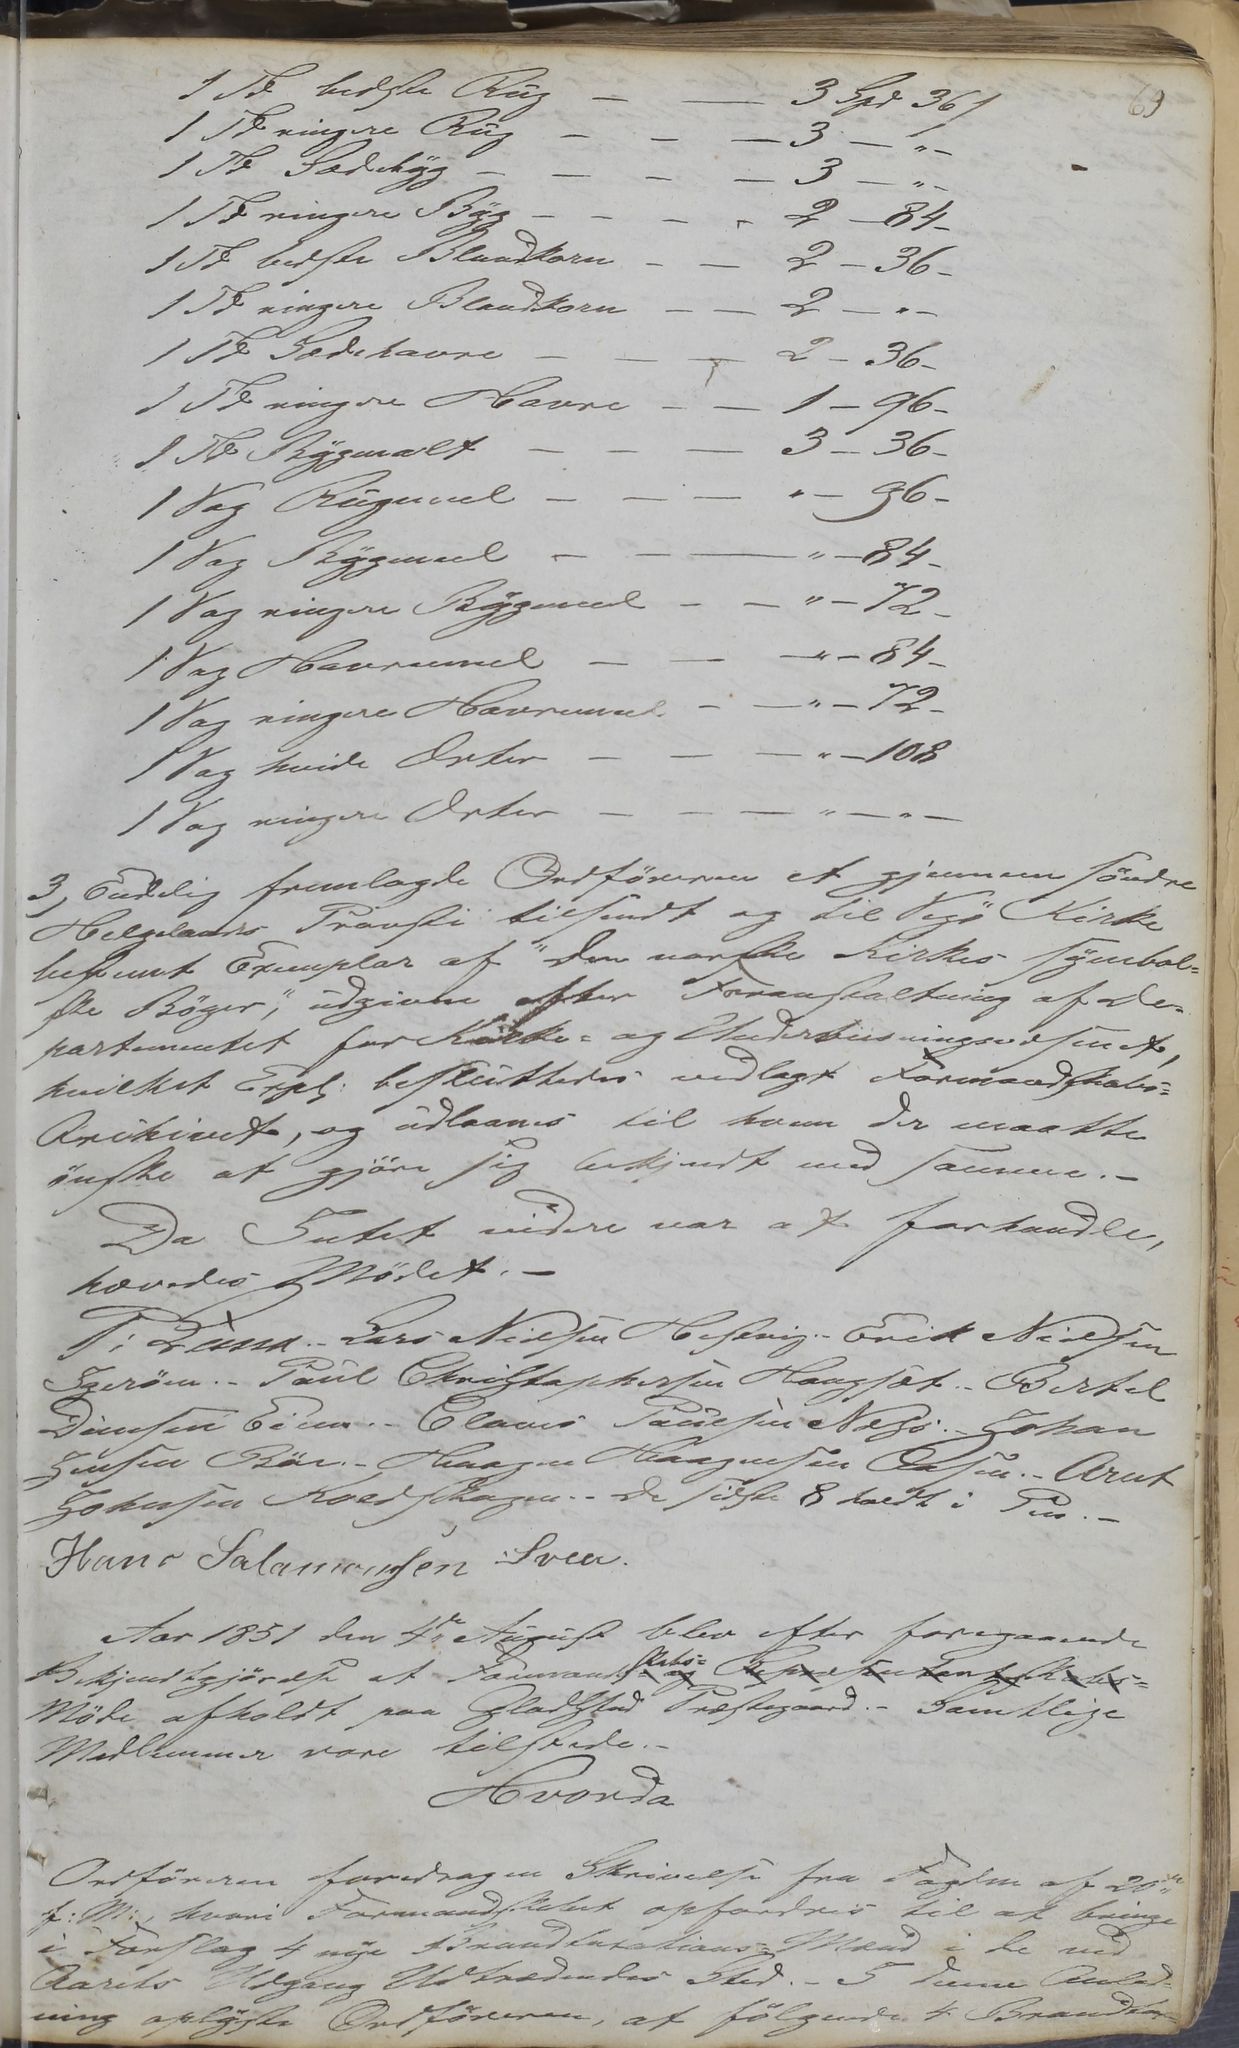 69
1 Td bedste Rug — — 3 Spd 36 ſ
1 Td ringere Rug — — — 3 — „ —
1 Td Sædebÿg — — — — 3 — „ —
1 Td ringere Bÿg — — — — 2 — 84 —
1 Td bedste Blandkorn — — 2 — 36 —
1 Td ringere Blandkorn — — 2 — „ —
1 Td Sædehavre — — — 2 — 36 —
1 Td ringere Havre — — 1 — 96 —
1 Td Bÿgmalt — — — 3 — 36 —
1 Vog Rugmeel — — — „ — 96 —
1 Vog Bÿgmeel — — — „ — 84 —
1 Vog ringere Bÿgmeel — — „ — 72 —
1 Vog Havremeel — — — „ — 84 —
1 Vog ringere Havremeel — — „ — 72 —
1 Vog hvide Erter — — — „ — 108
1 Vog ringere Erter — — — „ — „ —
3, Endelig fremlagde Ordföreren et gjennem söndre
Helgelands Provsti tilsendt og til Vegö Kirke
bestemt Exemplar af "den norske Kirkes sÿmbol-
ske Böger", udgivne efter Foranstaltning af De-
partementet for Kirke- og Underviisningsvæsenet,
hvilket Expl: besluttedes vedlagt Formandskabs-
Archivet, og udlaanes til hvem der maatte
önske at gjöre sig bekjendt med samme. —
Da Intet videre var at forhandle,
hævedes Mödet. —
P: Dund. - Lars Nielsen - Erik Nielsen
Igeröen. - Paul Christophersen Haugsæt. - Bertel
Eiem. - Claus Paulsen Nessö. - Johan
Jensen Böe. - Haagen Haagensen Aasen. - Arnt
Johnsen. - De sidste 8 holdt i Pen. —
Hans Salamonsen Sven.
Aar 1851 den 4de August blev efter foregaaende
Bekjendtgjörelse et Formandskabs- og Repræsentantskabs-
Möde afholdt paa Gladstad Præstegaard. - Samtlige
Medlemmer vare tilstede. —
Hvorda
Ordföreren foredragen Skrivelse fra Fogden af 20de
f: M:, hvori Formandskabet opfordres til at bringe
i Forslag 4 nye Brandtaxations-Mænd i de ved
Aarets Udgang Udtrædendes Sted. - I denne Anled-
ning oplÿste Ordföreren, at fölgende 4 Brandtax-